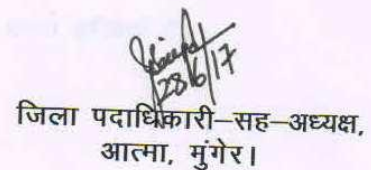 28/6/17
जिला पदाधिकारी-सह-अध्यक्ष,
आत्मा, मुंगेर।